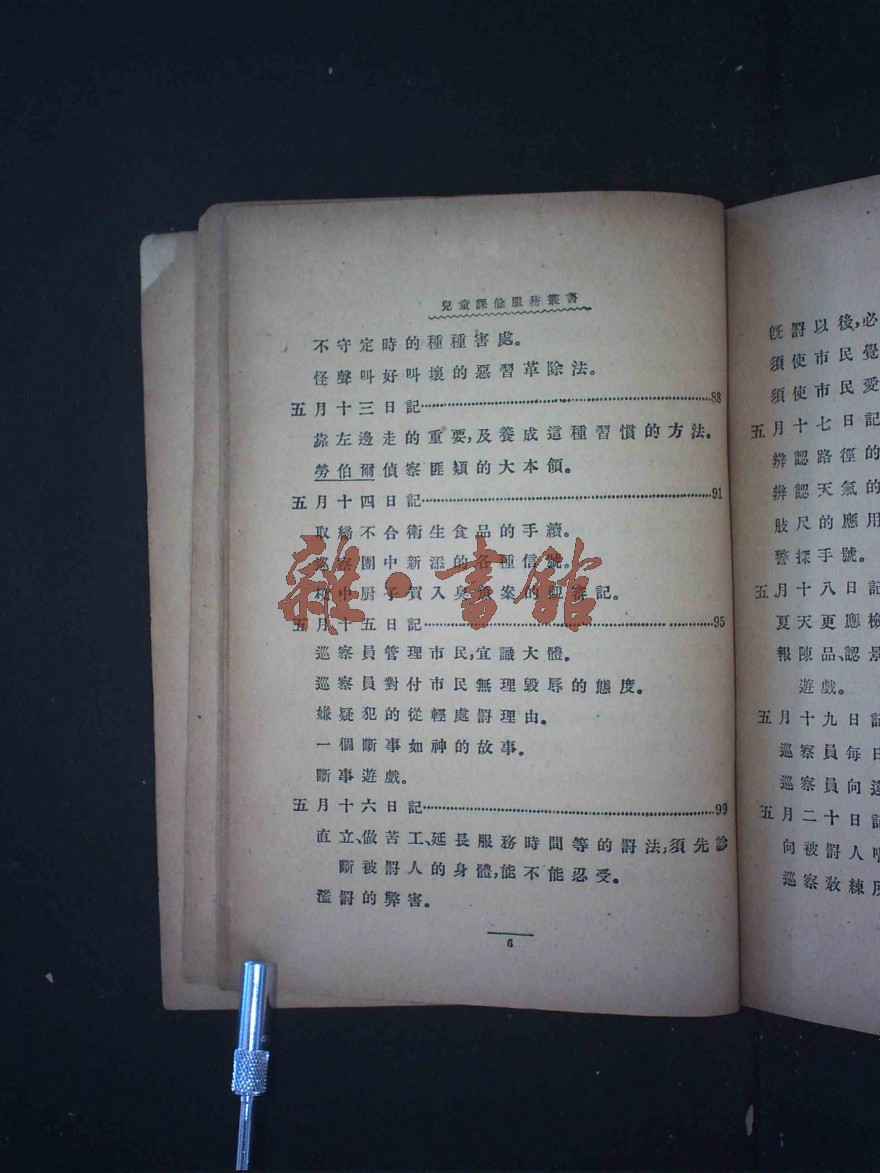 兒童課餘服務叢書
不守定時的種種害處。
怪聲叫好叫壞的惡習革除法。
五月十三日記……88
靠左邊走的重要,及養成這種習慣的方法。
勞伯爾偵察匪類的大本領。
五月十四日記……91
取締不合衛生食品的手續。
巡察團中新添的各種信號。
校中厨子買入臭魚案的
記。
五月十五日記……95
巡察員管理市民,宜識大體。
巡察員對付市民無理毀辱的態度。
嫌疑犯的從輕處罸理由。
一個斷事如神的故事。
斷事遊戲。
五月十六日記……99
直立、做苦工、延長服務時間等的罸法,須先診
斷被罸人的身體,能不能忍受。
濫罸的弊害。
6
雜·書館
旣罸以後,必
須使市民覺
須使市民愛
五月十七日記
辨認路徑的
辨認天氣的
肢尺的應用
警探手號。
五月十八日記
夏天更應檢
報陳品、認景
遊戲。
五月十九日記
巡察員每日
巡察員向違
五月二十日記
向被罸人
巡察敎練